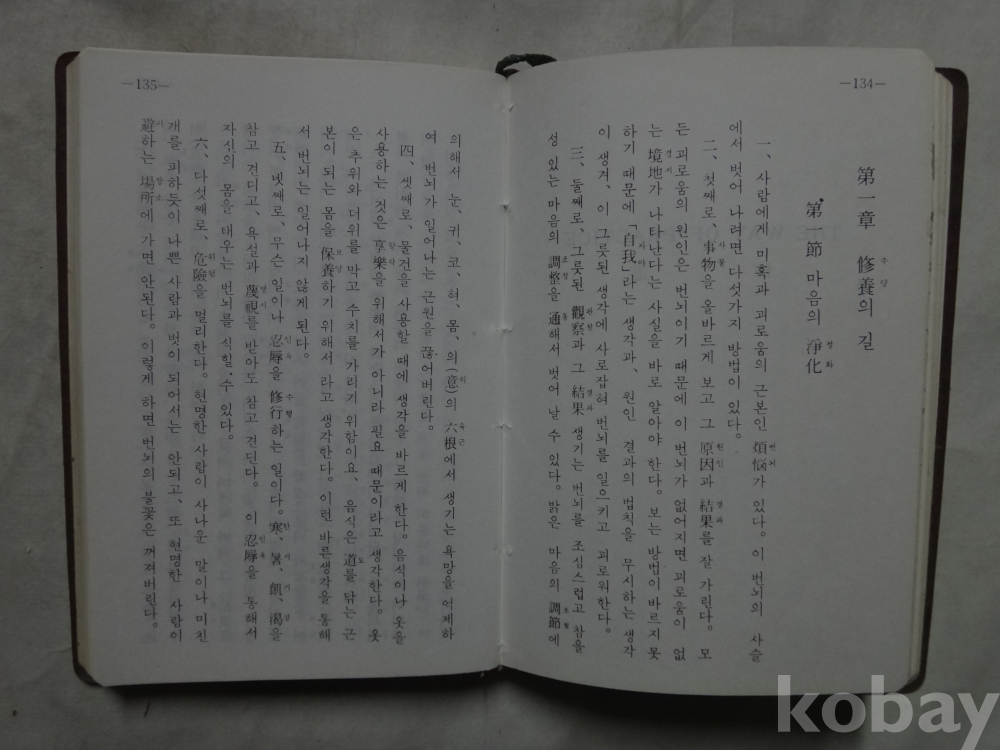 —134—
第一章 修養의 길
수양
第一節 마음의 淨化
정화
一、사람에게 미혹과 괴로움의 근본인 煩惱가 있다。이 번뇌의 사슬
번뇌
에서 벗어 나려면 다섯가지 방법이 있다。
二、첫째로、事物을 올바르게 보고 그 原因과 結果를 잘 가린다。모
사물 원인 결과
든 괴로움의 원인은 번뇌이기 때문에 이 번뇌가 없어지면 괴로움이 없
는 境地가 나타난다는 사실을 바로 알아야 한다。보는 방법이 바르지 못
경지
하기 때문에「自我」라는 생각과、원인 결과의 법칙을 무시하는 생각
자아
이 생겨、이 그릇된 생각에 사로잡혀 번뇌를 일으키고 괴로워한다。
三、둘째로、그릇된 觀察과 그 結果 생기는 번뇌를 조심스럽고 참을
관찰 결과
성 있는 마음의 調整을 通해서 벗어 날 수 있다。밝은 마음의 調節에
조정 통 조절
—135—
의해서 눈、귀、코、혀、몸、의(意)의 六根에서 생기는 욕망을 억제하
의 육근
여 번뇌가 일어나는 근원을 끊어버린다。
四、셋째로、물건을 사용할 때에 생각을 바르게 한다。음식이나 옷을
사용하는 것은 享樂을 위해서가 아니라 필요 때문이라고 생각한다。옷
향락
은 추위와 더위를 막고 수치를 가리기 위함이요、음식은 道를 닦는 근
도
본이 되는 몸을 保養하기 위해서 라고 생각한다。이런 바른생각을 통해
보양
서 번뇌는 일어나지 않게 된다。
五、넷째로、무슨 일이나 忍辱을 修行하는 일이다。寒、暑、飢、渴을
인욕 수행 한 서 기 갈
참고 견디고、욕설과 蔑視를 받아도 참고 견딘다。이 忍辱을 통해서
멸시 인욕
자신의 몸을 태우는 번뇌를 식힐 수 있다。
六、다섯째로、危險을 멀리한다。현명한 사람이 사나운 말이나 미친
위험
개를 피하듯이 나쁜 사람과 벗이 되어서는 안되고、또 현명한 사람이
避하는 場所에 가면 안된다。이렇게 하면 번뇌의 불꽃은 꺼져버린다。
피 장소
kobay